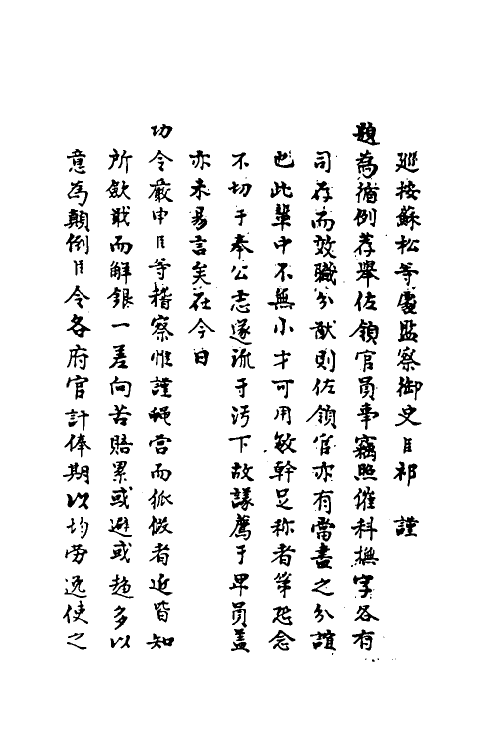 巡按蘇松等處監察御史臣祁 謹
題為循例荐舉佐領官員事竊照催科撫字各有
司存而效職分猷則佐領官亦有當盡之分誼
也此輩中不無小才可用敏幹足称者第恐念
不切于奉公志遂流于污下故議薦于卑員盖
亦未易言矣在今日
功令嚴申臣等稽察惟謹蝇营而狐假者近皆知
所歛戢而解銀一差向苦賠累或避或趋多以
意為顛倒臣令各府官計俸期以均劳逸使之